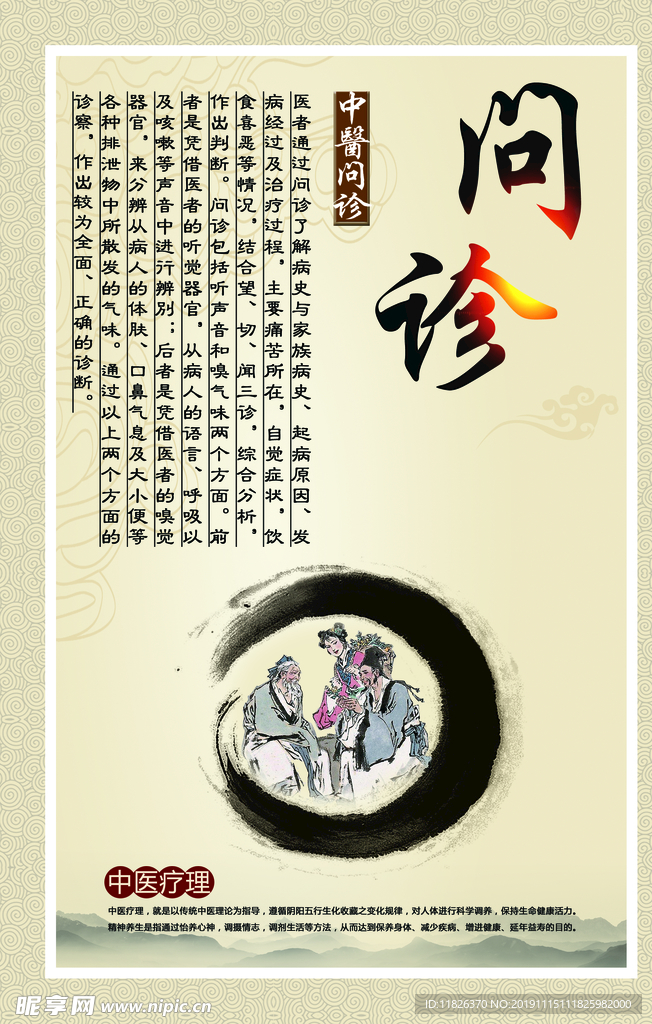 问
诊
中醫问诊
医者通过问诊了解病史与家族病史、起病原因、发
病经过及治疗过程，主要痛苦所在，自觉症状，饮
食喜恶等情况，结合望、切、闻三诊，综合分析，
作出判断。问诊包括听声音和嗅气味两个方面。前
者是凭借医者的听觉器官，从病人的语言、呼吸以
及咳嗽等声音中进行辨别；后者是凭借医者的嗅觉
器官，来分辨从病人的体肤、口鼻气息及大小便等
各种排泄物中所散发的气味。通过以上两个方面的
诊察，作出较为全面、正确的诊断。
中医疗理
中医疗理，就是以传统中医理论为指导，遵循阴阳五行生化收藏之变化规律，对人体进行科学调养，保持生命健康活力。
精神养生是指通过怡养心神，调摄情志，调剂生活等方法，从而达到保养身体、减少疾病、增进健康、延年益寿的目的。
昵享网 www.nipic.cn
ID:11826370 NO:20191115111825982000